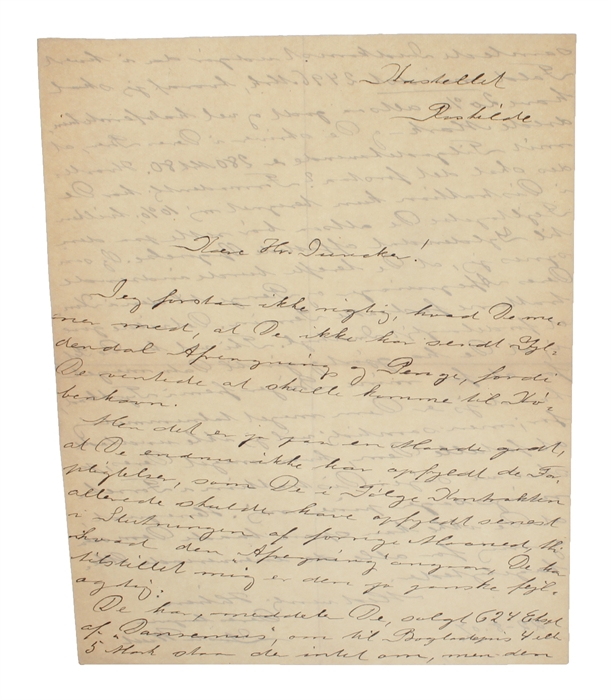 Kastellet
Roskilde
Kære Hr. Juncker!
Jeg forstaar ikke rigtig, hvad De me-
ner med, at De ikke har sendt Gyl-
dendal Afregning og Penge, fordi
De ventede at skulle komme til Kø-
benhavn.
Men det er jo paa en Maade godt,
at De endnu ikke har opfyldt de For-
pligtelser, som De i Følge Kontrakten
allerede skulde have opfyldt senest
i Slutningen af forrige Maaned, thi
hvad den "Afregning" angaar, De har
tilstillet mig er den jo ganske fejl-
agtig:
De har, meddelte De, solgt 624 Expl
af "Dansemus", om til Bogladepris 4 eller
5 Mark staar de intet om, men den